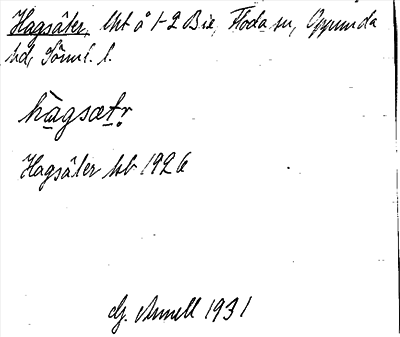 Hagsäter, lht å 1-2 Bie, Floda sn, Oppunda
hd, Sörml. l.
hàgsætr
Hagsäter kb 1926
G. Annell 1931